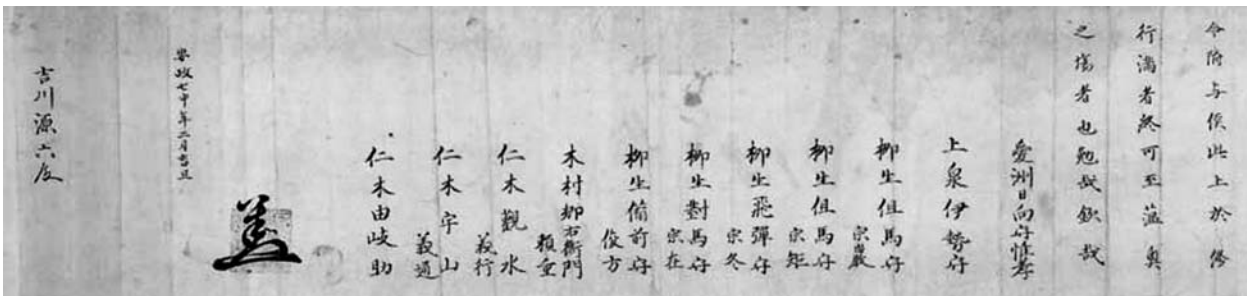 令附与候此上於修
行満者終可至薀奥
之場者也勉哉欽哉
愛洲日向守惟孝
上泉伊勢守
柳生但馬守
宗嚴
柳生但馬守
宗矩
柳生飛彈守
宗冬
柳生對馬守
宗在
柳生備前守
俊方
木村郷右衛門
頼重
仁木觀水
義行
仁木宇山
義通
仁木由岐助
安政七申年二月吉旦
吉川源六殿